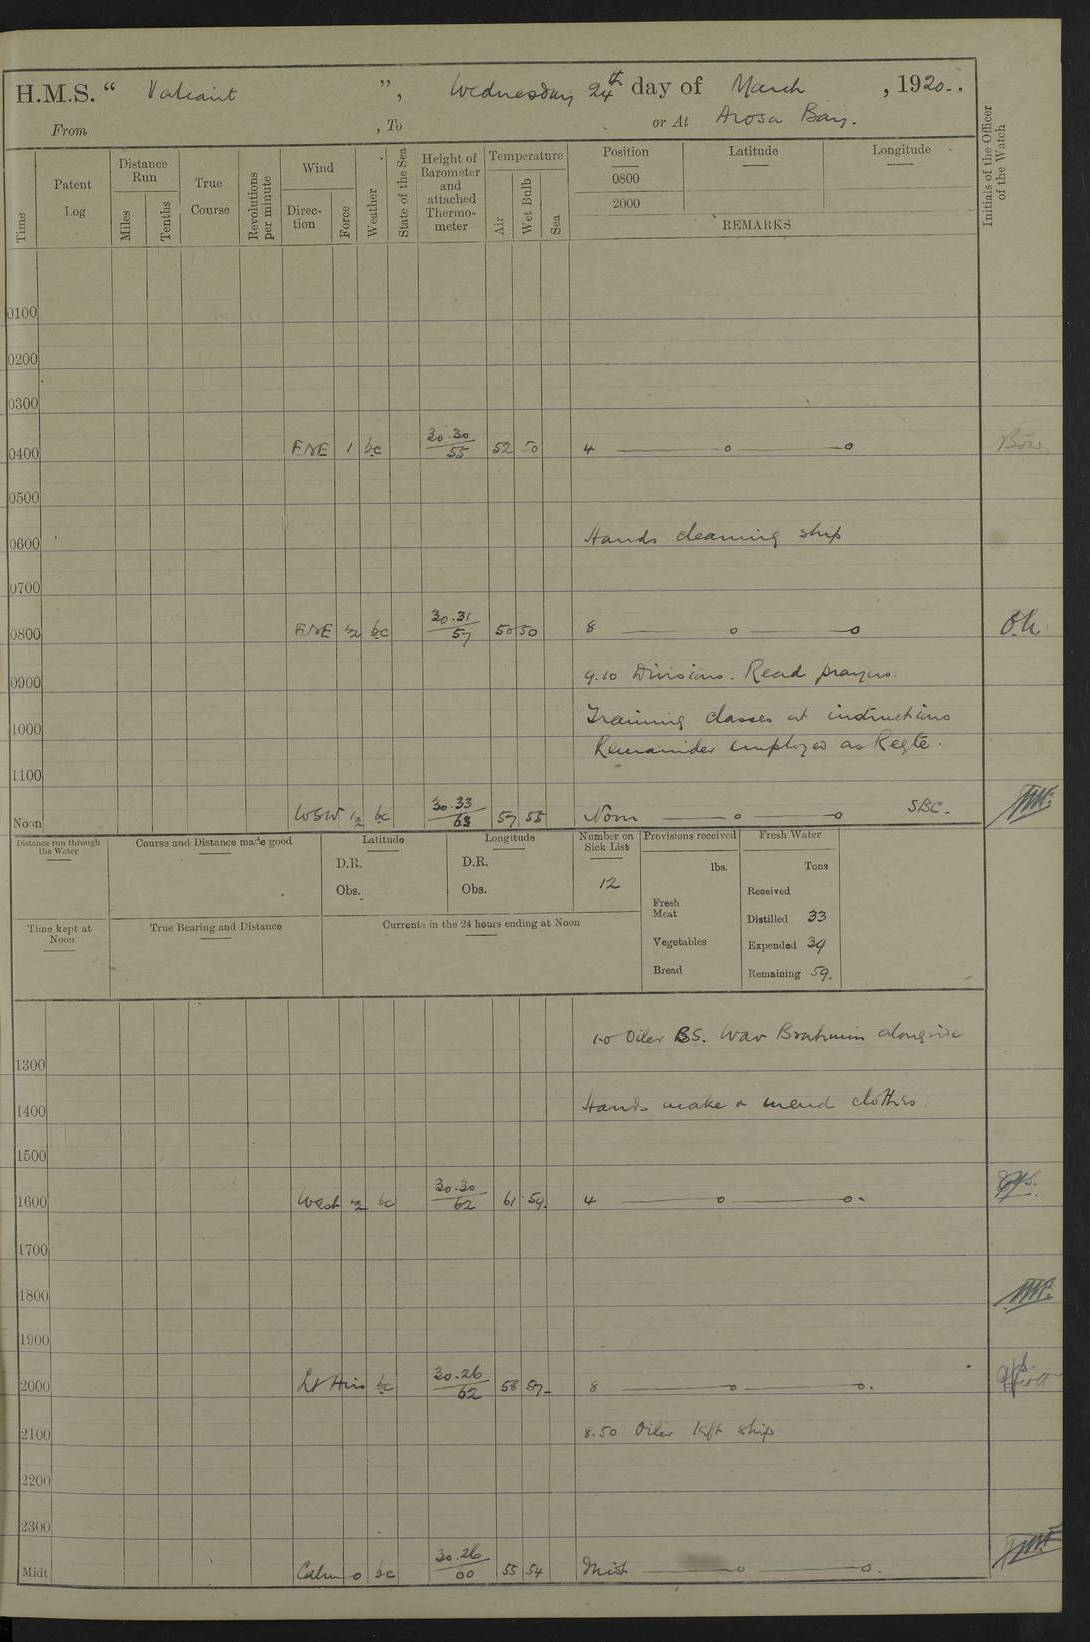 H.M.S. “ Valiant ”, Wednesday 24th day of March , 1920..
From , To or At Arosa Bay.
Time
Patent Log
Distance Run
Miles
Tenths
True Course
Revolutions per minute
Wind
Direction
Force
Weather
State of the Sea
Height of Barometer and attached Thermometer
Temperature
Air
Wet Bulb
Sea
Position
0800
2000
Latitude
Longitude
REMARKS
Initials of the Officer of the Watch
0100
0200
0300
0400 ENE 1 bc 30.30/55 52 50 4 —o—o
0500
0600 Hands cleaning ship
0700
0800 ENE ½ bc 30.31/57 50 50 8 —o—o
0900 9.10 Divisions. Read prayers.
1000 Training classes at instructions
Remainder employed as Reqte.
1100
Noon WSW ½ bc 30.33/63 57 55 Noon —o—o SBC.
Distance run through the Water
Course and Distance made good
Latitude
D.R.
Obs.
Longitude
D.R.
Obs.
Number on Sick List
12
Provisions received
lbs.
Fresh Meat
Vegetables
Bread
Fresh Water
Tons
Received
Distilled 33
Expended 34
Remaining 59.
Time kept at Noon
True Bearing and Distance
Currents in the 24 hours ending at Noon
1.0 Oiler BS. War Brahmin alongside
1300
1400 Hands make & mend clothes
1500
1600 West ½ bc 30.30/62 61 59. 4 —o—o.
1700
1800
1900
2000 Lt Airs bc 30.26/62 58 57 8 —o—o.
2100 8.50 Oiler left ship
2200
2300
Midt Calm 0 bc 30.26/60 55 54 Midt —o—o.